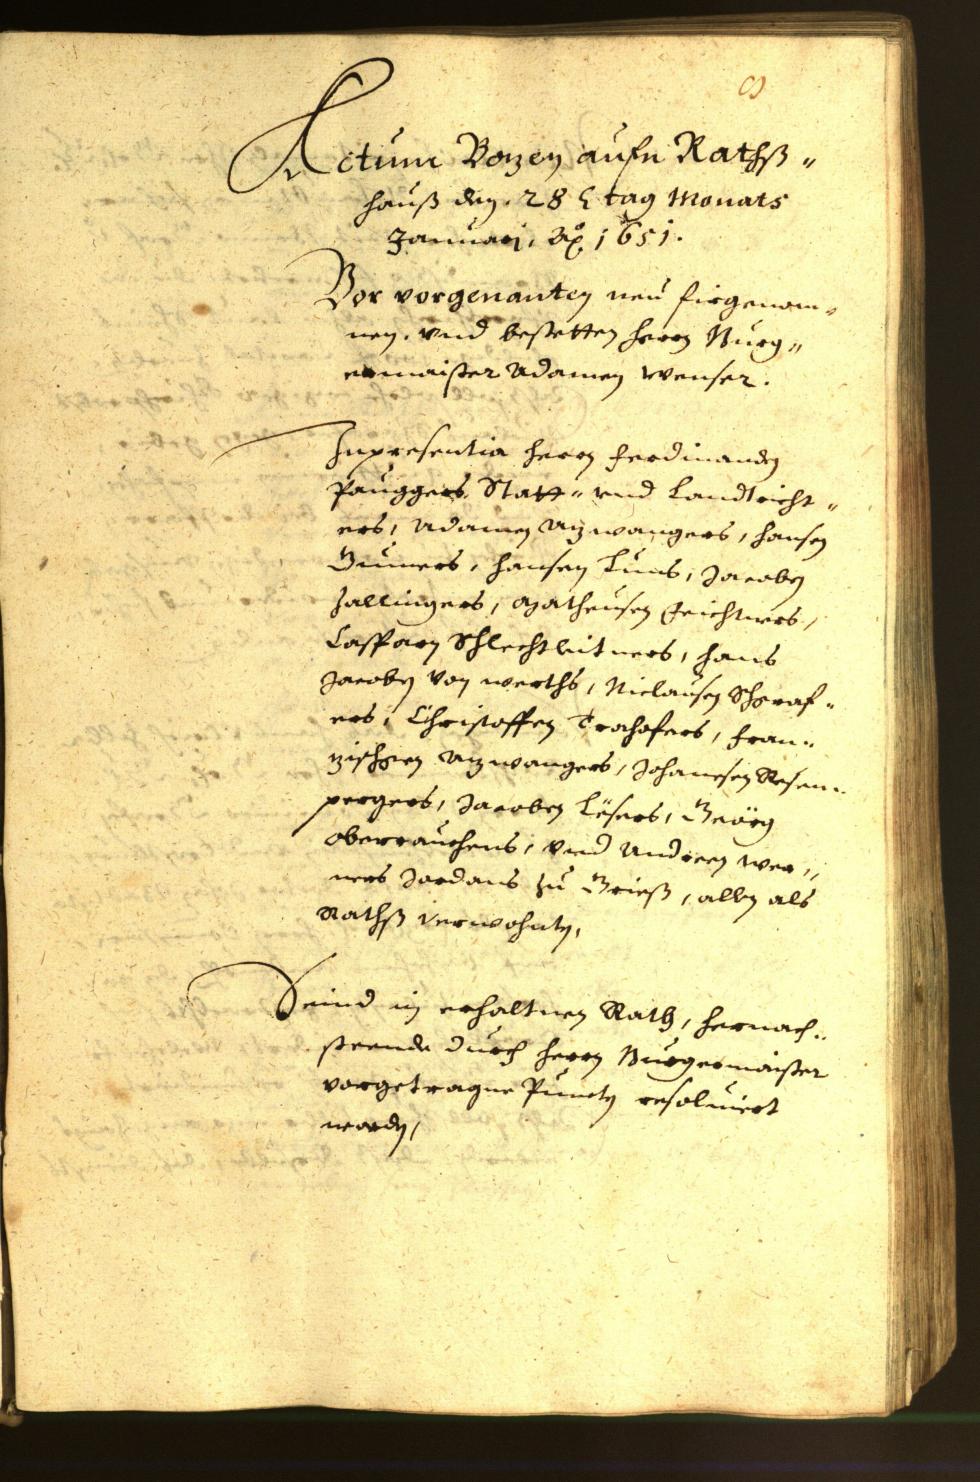 9
Actum Bozen aufn Rathß„
hauß den. 28 tag Monats
Januarj, Aō. 1651.
Vor vorgenanten neu firgenom„
nen, vnd bestetten herrn Burg„
ermaister Adamen Wenser.
Inpresentia herrn Ferdinanden
Pauggers Statt„ vnd Landtricht„
ers, Adamen Azwangers, hansen
Gumers, hansen Luns, Jacoben
Zallingers, Matheusen Feichtners,
Casparn Schlechtleitners, hans
Jacoben von Werths, Niclausen Schgraf„
ers, Christoffen Trohofers, Fran„
zischgen Azwangers, Johannesen Rosen„
pergers, Jacoben Lësers, Geörg
Oberrauchens, vnd Andreen Wer„
ners Jordans zu Grieß, allen als
Rathß verwohnten,
Seind in erhaltnen Rath, hernach„
steende durch herrn Burgermaister
vorgetragne Puncten resoluiert
worden,